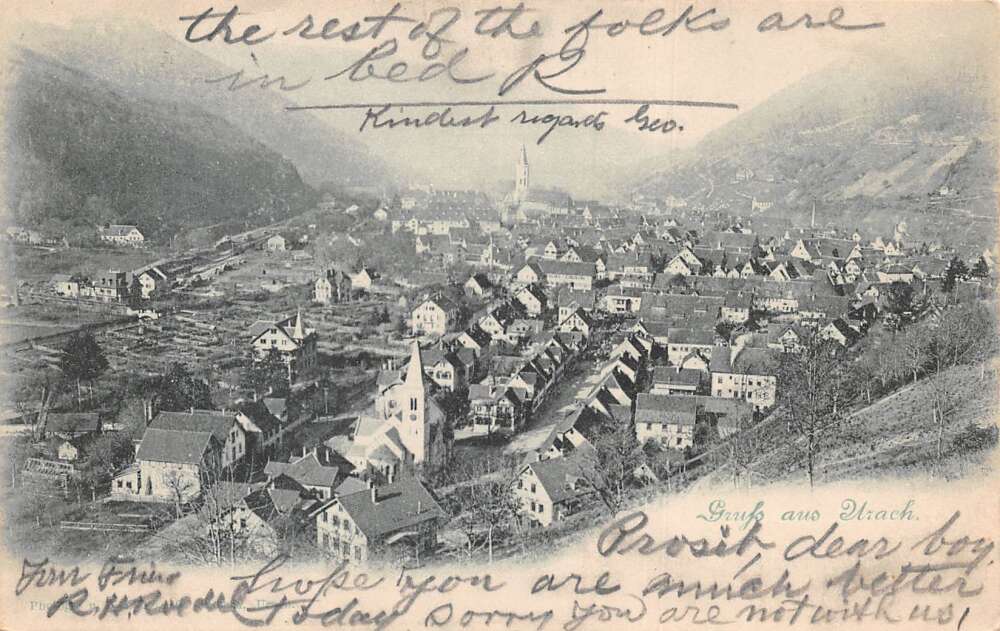 the rest of the folks are
in bed R
Kindest regards Geo.
Gruß aus Urach.
Prosit, dear boy,
I hope you are much better
today sorry you are not with us,